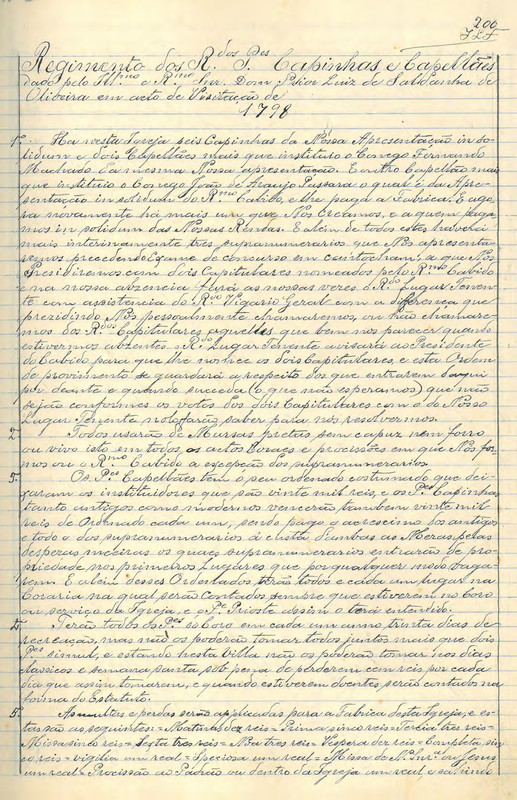 200
Regimento dos R.dos P.es Capinhas e Capellães
dado pelo Ill.mo e R.mo Snr. Dom Prior Luiz de Saldanha de
Oliveira em acto de Visitação de
1798
1.º Ha nesta Igreja seis Capinhas da Nossa Apresentação in so-
lidum e dois Capellães mais que instituio o Conego Fernando
Machado da mesma Nossa apresentação. E outro Capellão mais
que instituio o Conego João de Araujo Passara o qual é da Apre-
sentação in solidum do R.mo Cabido, e lhe paga a Fabrica. E ago-
ra novamente há mais um que Nós Creamos, e a quem paga-
mos in solidum das Nossas Rendas. E alem de todos estes haverá
mais interinamente tres supranumerarios que Nós apresenta-
remos precedendo Exame de concurso em cantocham, a que Nós
Presidiremos com dois Capitulares nomeados pelo R.mo Cabido
e na nossa abzencia fará as nossas vezes o R.do Lugar Tenen-
te com assistencia do R.do Vigario Geral com a differença que
prezidindo Nós pessoalmente chamaremos, ou não chamare-
mos os R.dos Capitulares aquelles que bem nos parecer, quando
estivermos abzentes o R.do Lugar Tenente avisará ao Presidente
do Cabido para que lhe nomee os dois Capitulares, e esta Ordem
de provimento se guardará a respeito dos que entrarem d'aqui
por deante e quando suceda (o que não esperamos) que não
sejão conformes os votos dos dois Capitulares com o do Nosso
Lugar Tenente no lo farão saber para nós resolvermos.
2.º Todos usarão de Mursas pretas sem capuz nem forro
ou vivo isto em todos os actos Coraes e procissões em que Nós fo-
rmos ou o R.mo Cabido a excepção dos supranumerarios.
3.º Os P.es Capellães tem o seu ordenado costumado que dei-
xaram os instituidores que são vinte mil reis, e os P.es Capinhas
tanto antigos como modernos vencerão tambem vinte mil
reis de Ordenado cada um, sendo pago o acrescimo dos antigos
e todo o dos supranumerarios á custa d'ambas as Mezas pelas
despezas meeiras os quaes supranumerarios entrarão de pro-
priedade nos primeiros Lugares que por qualquer modo vaga-
rem. E alem desses Ordenados terão todos e cada um lugar na
Coraria na qual serão contados sempre que estiverem no Coro
ou serviço da Igreja, e o P.e Prioste assim o terá entendido.
4.º Terão todos os P.es do Coro em cada um anno trinta dias de
recreação, mas não os poderão tomar todos juntos mais que dois
P.es simul, e estando nesta Villa não os poderão tomar nos dias
classicos e semana santa, sob pena de perderem cem reis por cada
dia que assim tomarem, e quando estiverem doentes, serão contados na
forma do Estatuto.
5.º As multas e perdas serão applicadas para a Fabrica desta Igreja, e es-
tas são as seguintes: = Matinas dez reis = Prima sinco reis = Tercia tres reis =
Missa sinco reis = Sexta tres reis = Nôa tres reis = Vespera dez reis = Completa, sin-
co reis = vigilia um real = Speciosa um real = Missa de N. Snr.ª ou Jesus
um real = Procissão ao Padrão ou dentro da Igreja um real, e sahindo